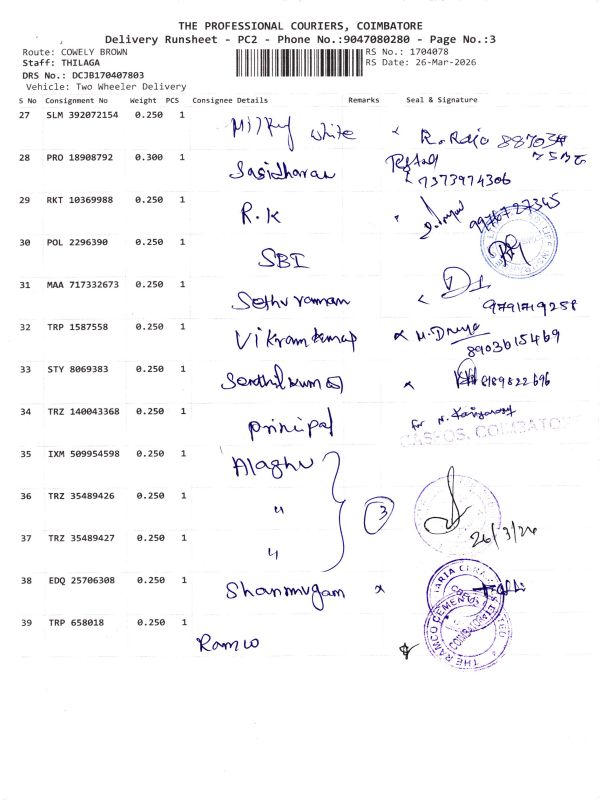 THE PROFESSIONAL COURIERS, COIMBATORE
Delivery Runsheet - PC2 - Phone No.:9047080280 - Page No.:3
Route: COWELY BROWN
RS No.: 1704078
Staff: THILAGA
RS Date: 26-Mar-2026
DRS No.: DCJB170407803
Vehicle: Two Wheeler Delivery
S No Consignment No Weight PCS Consignee Details Remarks Seal & Signature
27 SLM 392072154 0.250 1 Milky white
28 PRO 18908792 0.300 1 Sasidharan 7373974306
29 RKT 10369988 0.250 1 R.K 9976727345
30 POL 2296390 0.250 1 SBI
31 MAA 717332673 0.250 1 Sethu raman 9791719258
32 TRP 1587558 0.250 1 Vikram kumar 8903615469
33 STY 8069383 0.250 1 Senthil kumar 8189822696
34 TRZ 140043368 0.250 1 prinipal for
COIMBATORE
35 IXM 509954598 0.250 1 Alaghu
36 TRZ 35489426 0.250 1 " 3
26/3/26
37 TRZ 35489427 0.250 1 "
38 EDQ 25706308 0.250 1 Shanmugam
39 TRP 658018 0.250 1 Ramco
THE RAMCO CEMENTS LIMITED
COIMBATORE